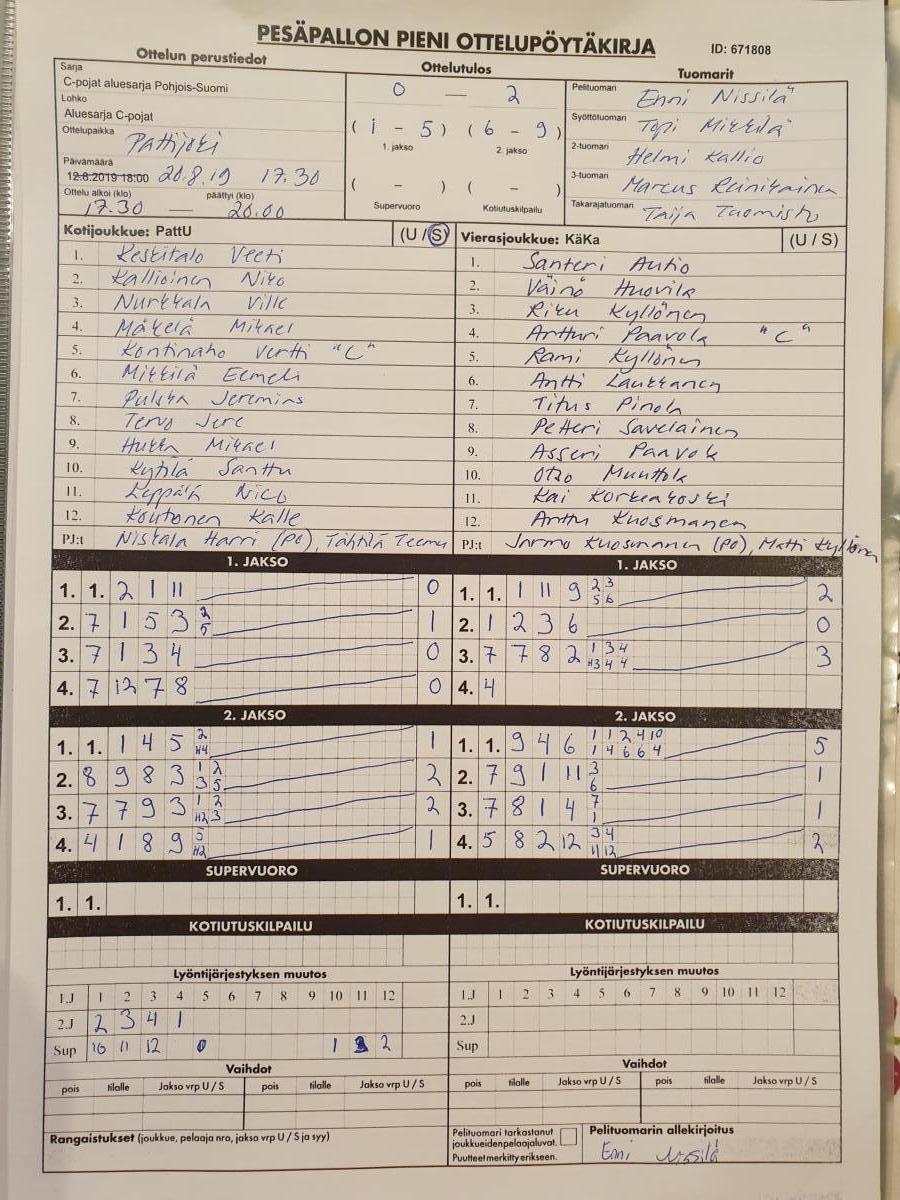 PESÄPALLON PIENI OTTELUPÖYTÄKIRJA
ID: 671808
Ottelun perustiedot
Ottelutulos
Tuomarit
Sarja
C-pojat aluesarja Pohjois-Suomi
Lohko
Aluesarja C-pojat
Ottelupaikka
Pattijoki
Päivämäärä
12.8.2019 18:00 20.8.19 17.30
Ottelu alkoi (klo) päättyi (klo)
17.30 — 20.00
0 — 2
( 1 - 5 ) ( 6 - 9 )
1. jakso 2. jakso
( - ) ( - )
Supervuoro Kotiutuskilpailu
Pelituomari Enni Nissilä
Syöttötuomari Topi Mikkilä
2-tuomari Helmi Kallio
3-tuomari Marcus Reinikainen
Takarajatuomari Taija Tuomisto
Kotijoukkue: PattU (U / S)
1. Keskitalo Veeti
2. Kallioinen Niko
3. Nurkkala Ville
4. Mäkelä Mikael
5. Kontinaho Vertti "C"
6. Mikkilä Eemeli
7. Pulkka Jeremias
8. Tervo Jere
9. Hukka Mikael
10. Kyhilä Santtu
11. Leppälä Nico
12. Koutonen Kalle
PJ:t Niskala Harri (PO), Tähtilä Teemu
Vierasjoukkue: KäKa (U / S)
1. Santeri Autio
2. Väinö Huovila
3. Riku Kyllönen
4. Artturi Paavola "C"
5. Rami Kyllönen
6. Antti Laukkanen
7. Titus Pinola
8. Petteri Savelainen
9. Asseri Paavola
10. Otso Muuttola
11. Kai Korkeakoski
12. Arttu Kuosmanen
PJ:t Jarmo Kuosmanen (PO), Matti Kyllönen
1. JAKSO
1. 1. 2 1 11 0
2. 7 1 5 3 2 5 1
3. 7 1 3 4 0
4. 7 12 7 8 0
1. JAKSO
1. 1. 1 11 9 2 3 5 6 2
2. 1 2 3 6 0
3. 7 7 8 2 1 3 4 H3 4 4 3
4. 4
2. JAKSO
1. 1. 1 4 5 2 H4 1
2. 8 9 8 3 1 2 3 5 2
3. 7 7 9 3 1 2 H2 3 2
4. 4 1 8 9 5 H2 1
2. JAKSO
1. 1. 9 4 6 1 1 2 4 10 1 4 6 6 4 5
2. 7 9 1 11 3 6 1
3. 7 8 1 4 7 1 1
4. 5 8 2 12 3 4 11 12 2
SUPERVUORO
1. 1.
SUPERVUORO
1. 1.
KOTIUTUSKILPAILU
KOTIUTUSKILPAILU
Lyöntijärjestyksen muutos
1.J 1 2 3 4 5 6 7 8 9 10 11 12
2.J 2 3 4 1
Sup 10 11 12 1 2
Lyöntijärjestyksen muutos
1.J 1 2 3 4 5 6 7 8 9 10 11 12
2.J
Sup
Vaihdot
pois tilalle Jakso vrp U / S pois tilalle Jakso vrp U / S
Vaihdot
pois tilalle Jakso vrp U / S pois tilalle Jakso vrp U / S
Rangaistukset (joukkue, pelaaja nro, jakso vrp U / S ja syy)
Pelituomari tarkastanut
joukkueidenpelaajaluvat.
Puutteet merkitty erikseen.
Pelituomarin allekirjoitus
Enni Nissilä